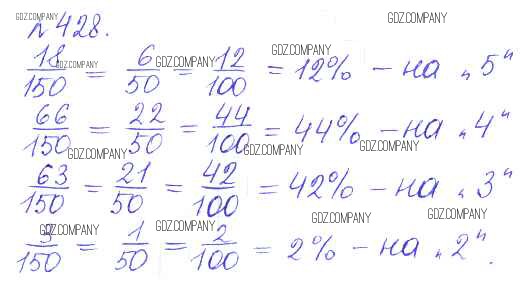 № 428.
18/150 = 6/50 = 12/100 = 12% – на „5"
66/150 = 22/50 = 44/100 = 44% – на „4"
63/150 = 21/50 = 42/100 = 42% – на „3"
3/150 = 1/50 = 2/100 = 2% – на „2".
GDZ.COMPANY
GDZ.COMPANY
GDZ.COMPANY
GDZ.COMPANY
GDZ.COMPANY
GDZ.COMPANY
GDZ.COMPANY
GDZ.COMPANY
GDZ.COMPANY
GDZ.COMPANY
GDZ.COMPANY
GDZ.COMPANY